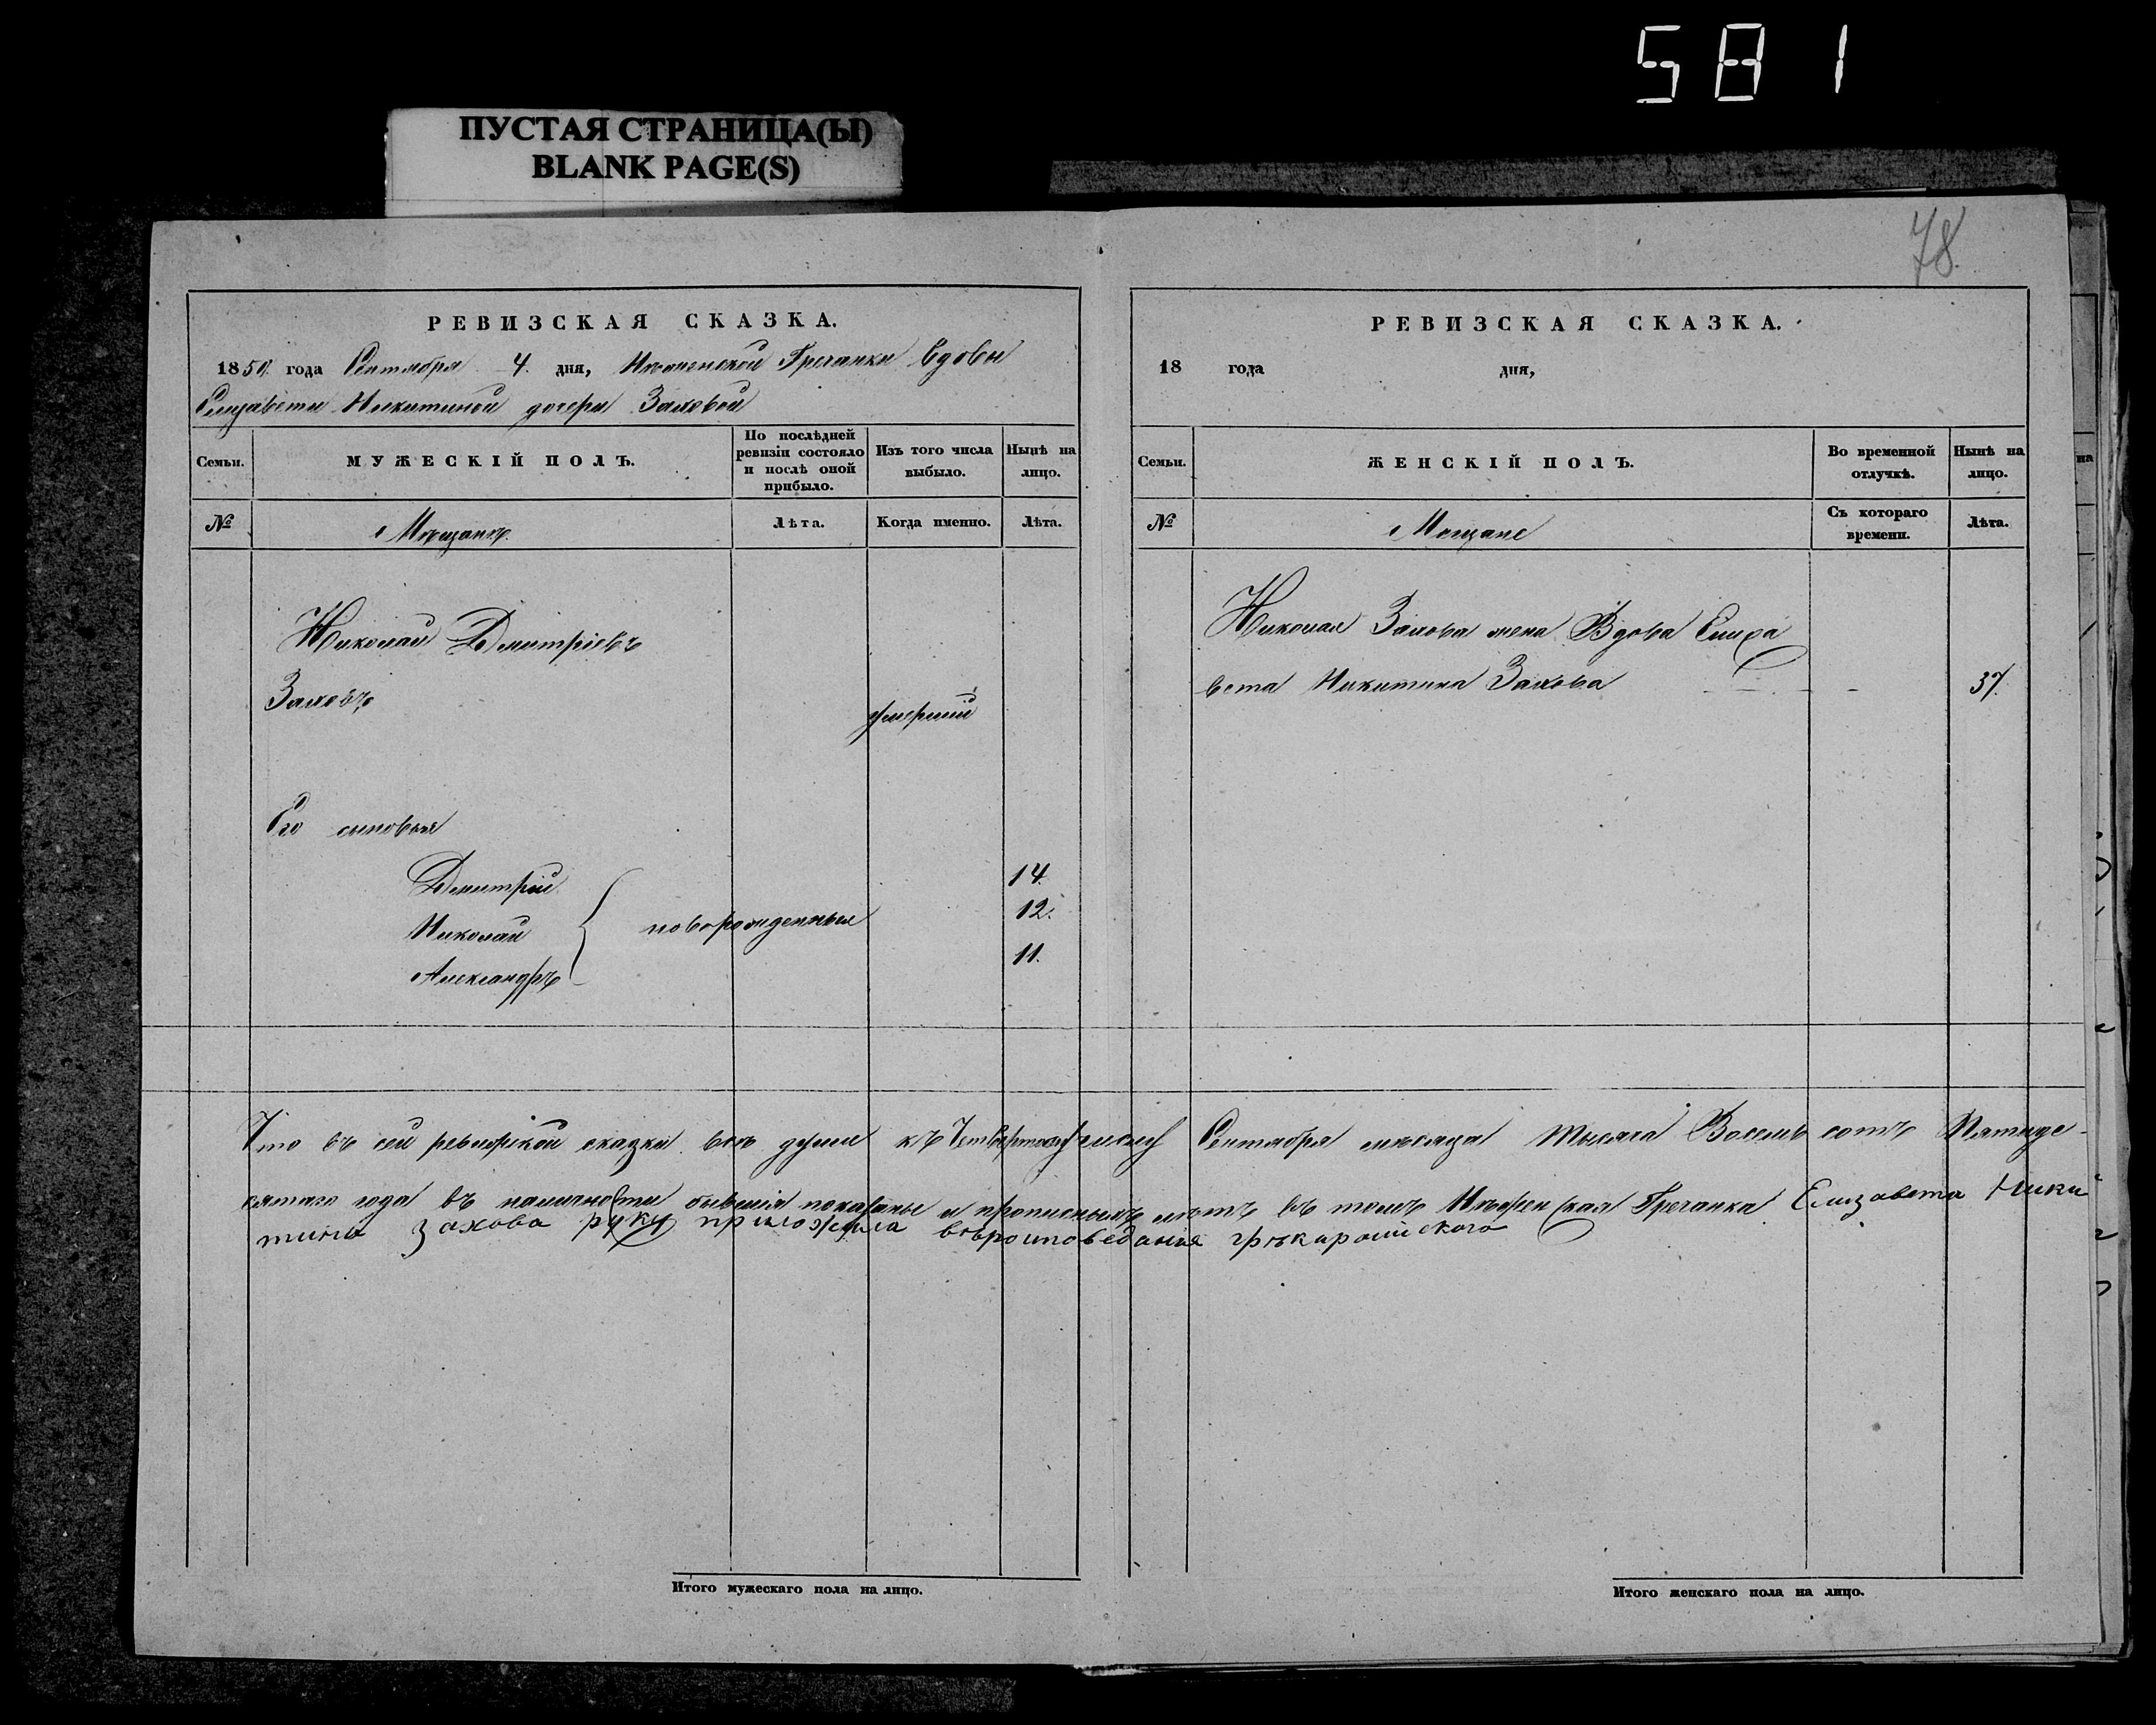 581
ПУСТАЯ СТРАНИЦА(Ы)
BLANK PAGE(S)
78
РЕВИЗСКАЯ СКАЗКА.
1850 года Сентября 4 дня, Нѣженской Гречанки вдовы
Елизаветы Никитиной дочери Заховой
Семьи.
МУЖЕСКІЙ ПОЛЪ.
По послѣдней
ревизіи состояло
и послѣ оной
прибыло.
Изъ того числа
выбыло.
Нынѣ на
лицо.
№
Мѣщанъ.
Лѣта.
Когда именно.
Лѣта.
Николай Дмитріевъ
Заховъ
умершій
Его сыновья
Дмитрій 14.
Николай новорожденныя 12.
Александръ 11.
РЕВИЗСКАЯ СКАЗКА.
18 года дня,
Семьи.
ЖЕНСКІЙ ПОЛЪ.
Во временной
отлучкѣ.
Нынѣ на
лицо.
№
Мещане
Съ котораго
времени.
Лѣта.
Николая Захова жена Вдова Елиза
вета Никитина Захова 37.
Что въ сей ревизской сказки всѣ души къ Четвертому числу Сентября мѣсяца тысяча Восемь сотъ Пятиде-
сятаго года въ наличности бывшія показаны и прописныхъ нѣтъ въ томъ Нѣженская Гречанка Елизавета Ники
тина Захова руку приложила вѣроиповеданія грѣкаросійского
Итого мужескаго пола на лицо.
Итого женскаго пола на лицо.